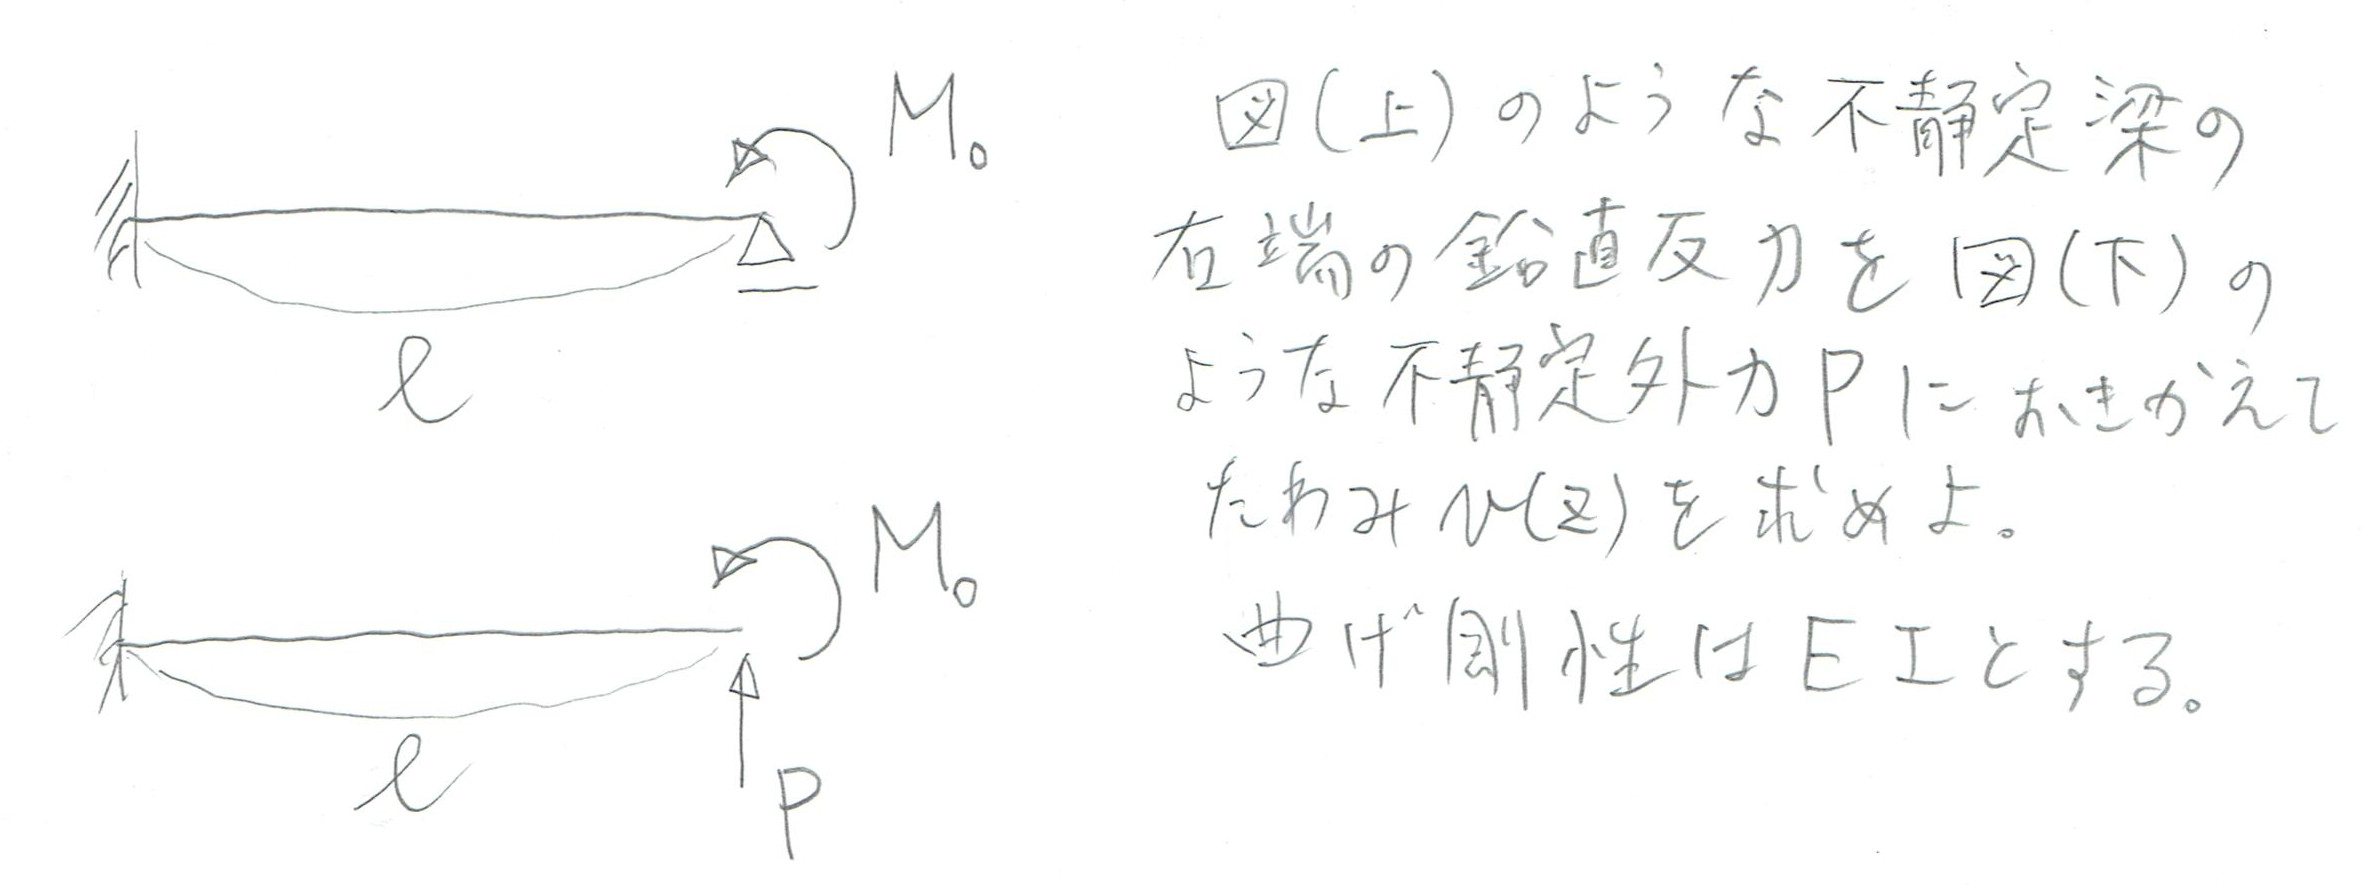 M₀
l
M₀
l
P
図(上)のような不静定梁の
右端の鉛直反力を図(下)の
ような不静定外力Pにおきかえて
たわみv(z)を求めよ。
曲げ剛性はEIとする。